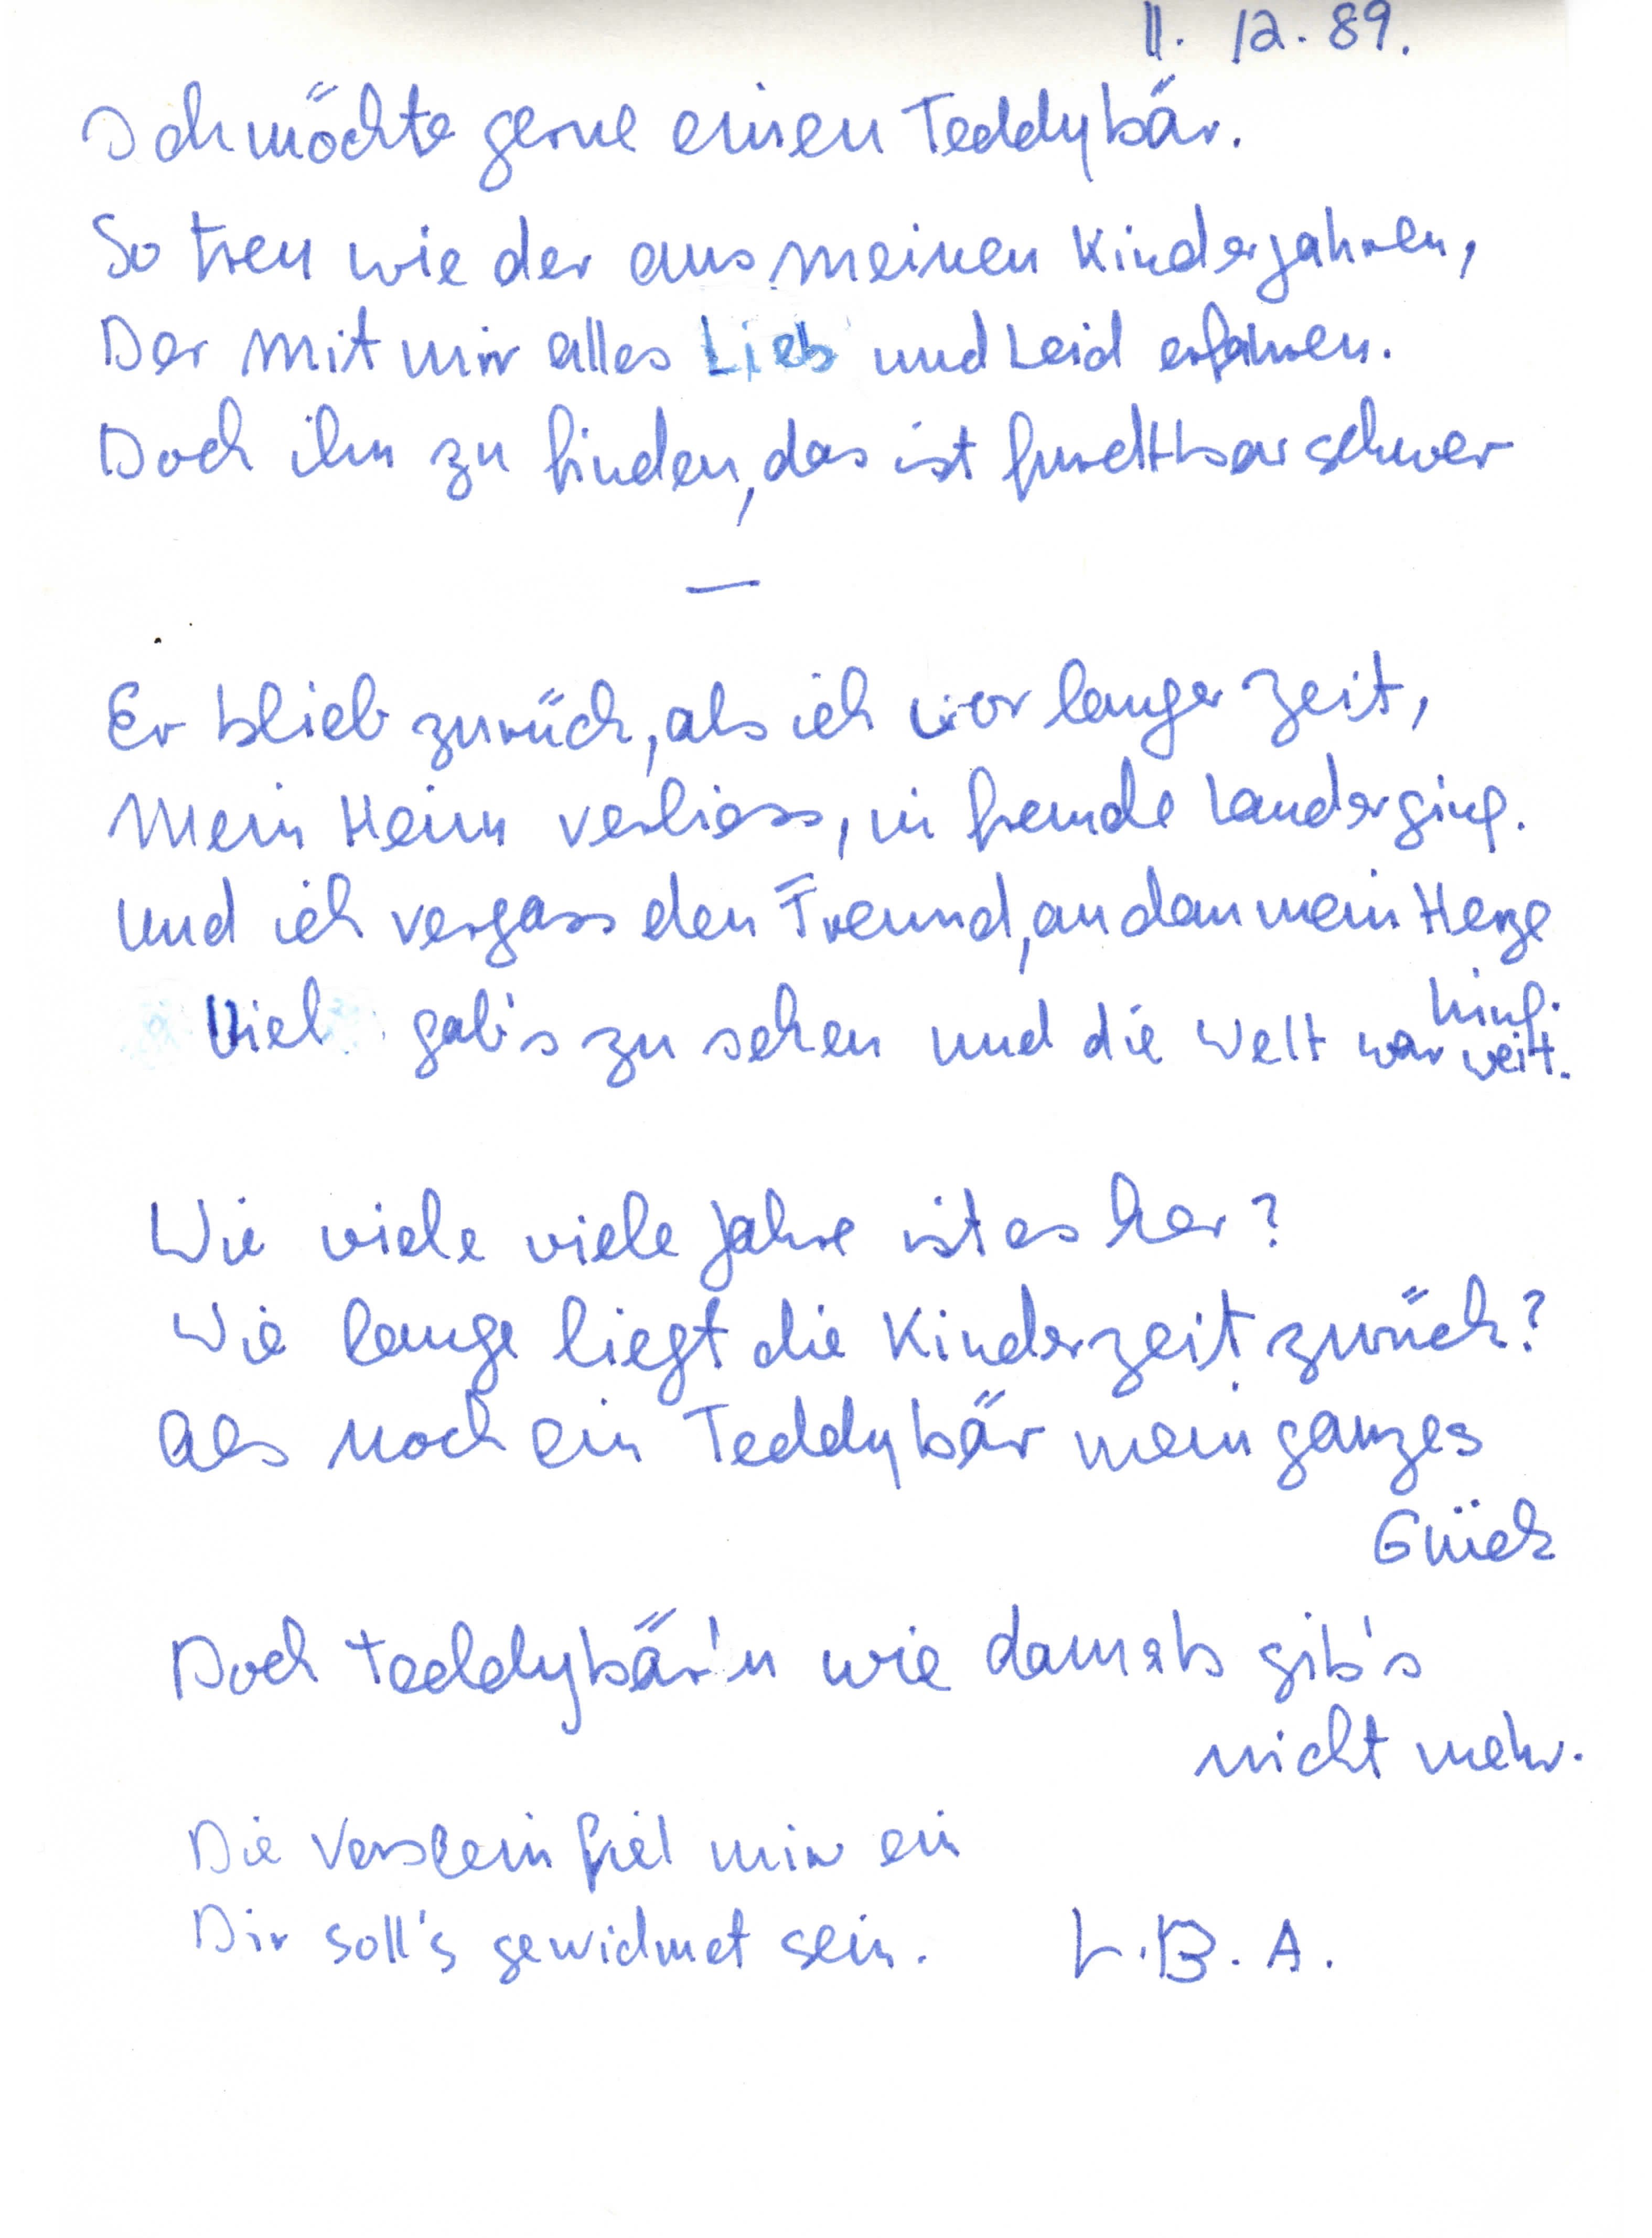 11. 12. 89.
Ich möchte gerne einen Teddybär.
So treu wie der aus meinen Kinderjahren,
Der mit mir alles Lieb und Leid erfahren.
Doch ihn zu finden, das ist furchtbar schwer
—
Er blieb zurück, als ich vor langer Zeit,
Mein Heim verliess, in fremde Länder ging.
Und ich vergass den Freund, an dem mein Herze
hing.
Viel gab's zu sehen und die Welt war weit.
Wie viele viele Jahre ist es her?
Wie lange liegt die Kinderzeit zurück?
Als noch ein Teddybär mein ganzes
Glück
Doch Teddybär'n wie damals gib's
nicht mehr.
Die Verslein fiel mir ein
Dir soll's gewidmet sein. L. B. A.